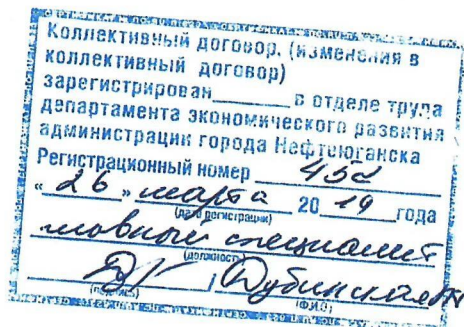 Коллективный договор. (изменения в
коллективный договор)
зарегистрирован_______в отделе труда
департамента экономического развития
администрации города Нефтеюганска
Регистрационный номер 452
"26" марта 2019 года
(дата регистрации)
главный специалист
(должность)
/ Дубинская
(подпись) (Ф.И.О)